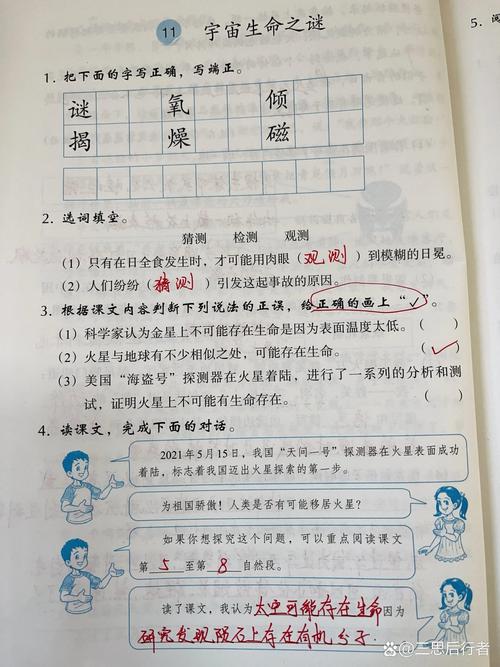 11 宇宙生命之谜
5. 阅
1. 把下面的字写正确，写端正。
谜 氧 倾
揭 燥 磁
2. 选词填空。
猜测 检测 观测
（1）只有在日全食发生时，才可能用肉眼（观测）到模糊的日冕。
（2）人们纷纷（猜测）引发这起事故的原因。
3. 根据课文内容判断下列说法的正误，给正确的画上“✓”。
（1）科学家认为金星上不可能存在生命是因为表面温度太低。（ ）
（2）火星与地球有不少相似之处，可能存在生命。（✓）
（3）美国“海盗号”探测器在火星着陆，进行了一系列的分析和测
试，证明火星上不可能有生命存在。（ ）
4. 读课文，完成下面的对话。
2021年5月15日，我国“天问一号”探测器在火星表面成功
着陆，标志着我国迈出火星探索的第一步。
为祖国骄傲！人类是否有可能移居火星？
如果你想探究这个问题，可以重点阅读课文
第5至第8自然段。
读了课文，我认为太空可能存在生命因为
研究发现陨石上存在有机分子.
@三思后行者